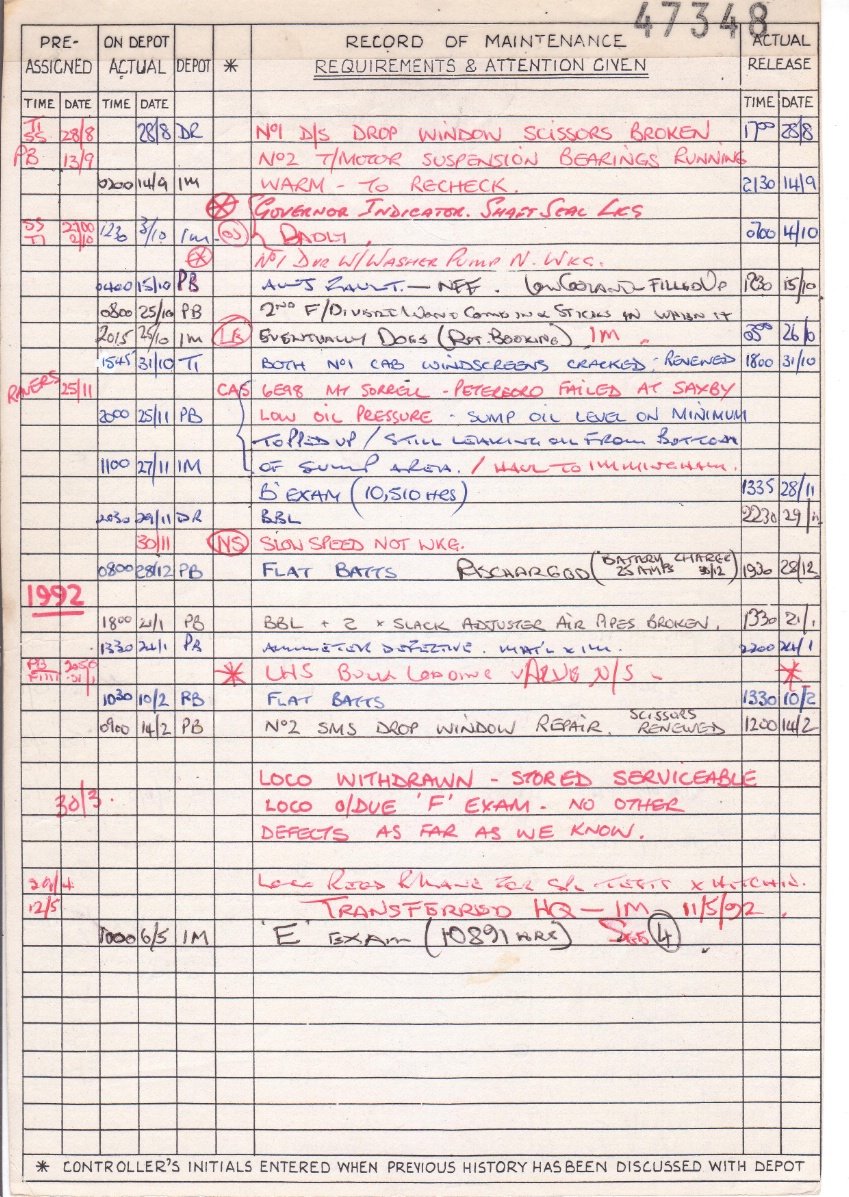 47348
PRE- ON DEPOT RECORD OF MAINTENANCE ACTUAL
ASSIGNED ACTUAL DEPOT * REQUIREMENTS & ATTENTION GIVEN RELEASE
TIME DATE TIME DATE TIME DATE
TI
SS 28/8 28/8 DR Nº1 D/S DROP WINDOW SCISSORS BROKEN 1700 28/8
PB 13/9 Nº2 T/MOTOR SUSPENSION BEARINGS RUNNING
0200 14/9 IM WARM - TO RECHECK. 2130 14/9
GOVERNOR INDICATOR. SHAFT SEAL LKG
SS 2200
TI 2/10 1230 3/10 IM BADLY 0700 4/10
Nº1 DVR W/WASHER PUMP N. WKG.
0400 15/10 PB FAULT - NFF. LOW COOLANT FILLED UP 1230 15/10
0800 25/10 PB 2ND F/DIVERT WONT COME IN & STICKS IN WHEN IT
2015 25/10 IM EVENTUALLY DOES (REP. BOOKING) IM. 26/10
1545 31/10 TI BOTH Nº1 CAB WINDSCREENS CRACKED - RENEWED 1800 31/10
25/11 CAS 6E98 MT SORRELL - PETERBORO FAILED AT SAXBY
2000 25/11 PB LOW OIL PRESSURE - SUMP OIL LEVEL ON MINIMUM
TOPPED UP / STILL LEAKING OIL FROM BOTTOM
1100 27/11 IM OF SUMP AREA. / HAUL TO IMMINGHAM.
B' EXAM (10,510 HRS) 1335 28/11
2030 29/11 DR BBL 2230 29/11
30/11 NS SLOW SPEED NOT WKG.
0800 28/12 PB FLAT BATTS RECHARGED (BATTERY CHARGE 25 AMPS 30/12) 1930 28/12
1992
1800 21/1 PB BBL + 2 × SLACK ADJUSTER AIR PIPES BROKEN. 1330 21/1
1330 24/1 PB AMMETER DEFECTIVE. MAT'L X IM. 2200 24/1
PB 2050
31/1 * LHS BULK LOADING VALVE N/S - *
1030 10/2 PB FLAT BATTS 1330 10/2
0900 14/2 PB Nº2 SMS DROP WINDOW REPAIR. SCISSORS RENEWED 1200 14/2
LOCO WITHDRAWN - STORED SERVICEABLE
30/3. LOCO O/DUE 'F' EXAM - NO OTHER
DEFECTS AS FAR AS WE KNOW.
29/4 LOCO FOR TESTS X HITCHIN.
12/5 TRANSFERRED HQ - IM 11/5/92.
1000 6/5 IM 'E' EXAM (10891 HRS) SEE 4
* CONTROLLER'S INITIALS ENTERED WHEN PREVIOUS HISTORY HAS BEEN DISCUSSED WITH DEPOT